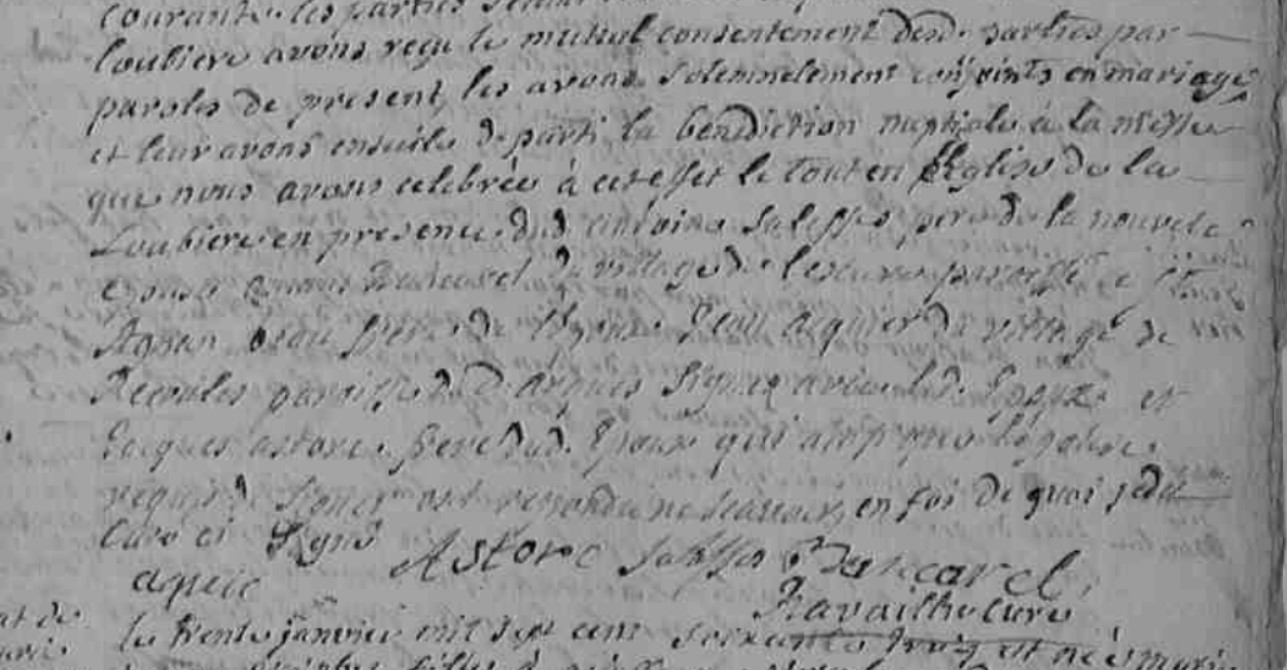 courante les parties
Loubiere avons reçu le mutuel consentement desd. parties par
paroles de present, les avons solemnelement conjoints en mariage
et leur avons ensuite departi la benediction nuptiale à la messe
que nous avons celebrée à cet effet le tout en Eglise de la
Loubiere en presence dud antoine Salesses pere de la nouvele
epouse Bancarel du village de paroisse
Agnan beau frere de l'epouse Jean du village de
Recoules paroisse d'arques signes avec led. Epoux et
Jacques astorc frere dud. Epoux qui ainsi que l'epouse
requis de signer ont repondu ne scavoir, en foi de quoi je dit
Curé ci signé Astorc Salesses Bancarel
aquie Travailhe Curé
le trente janvier mil sept cent soixante trois est né